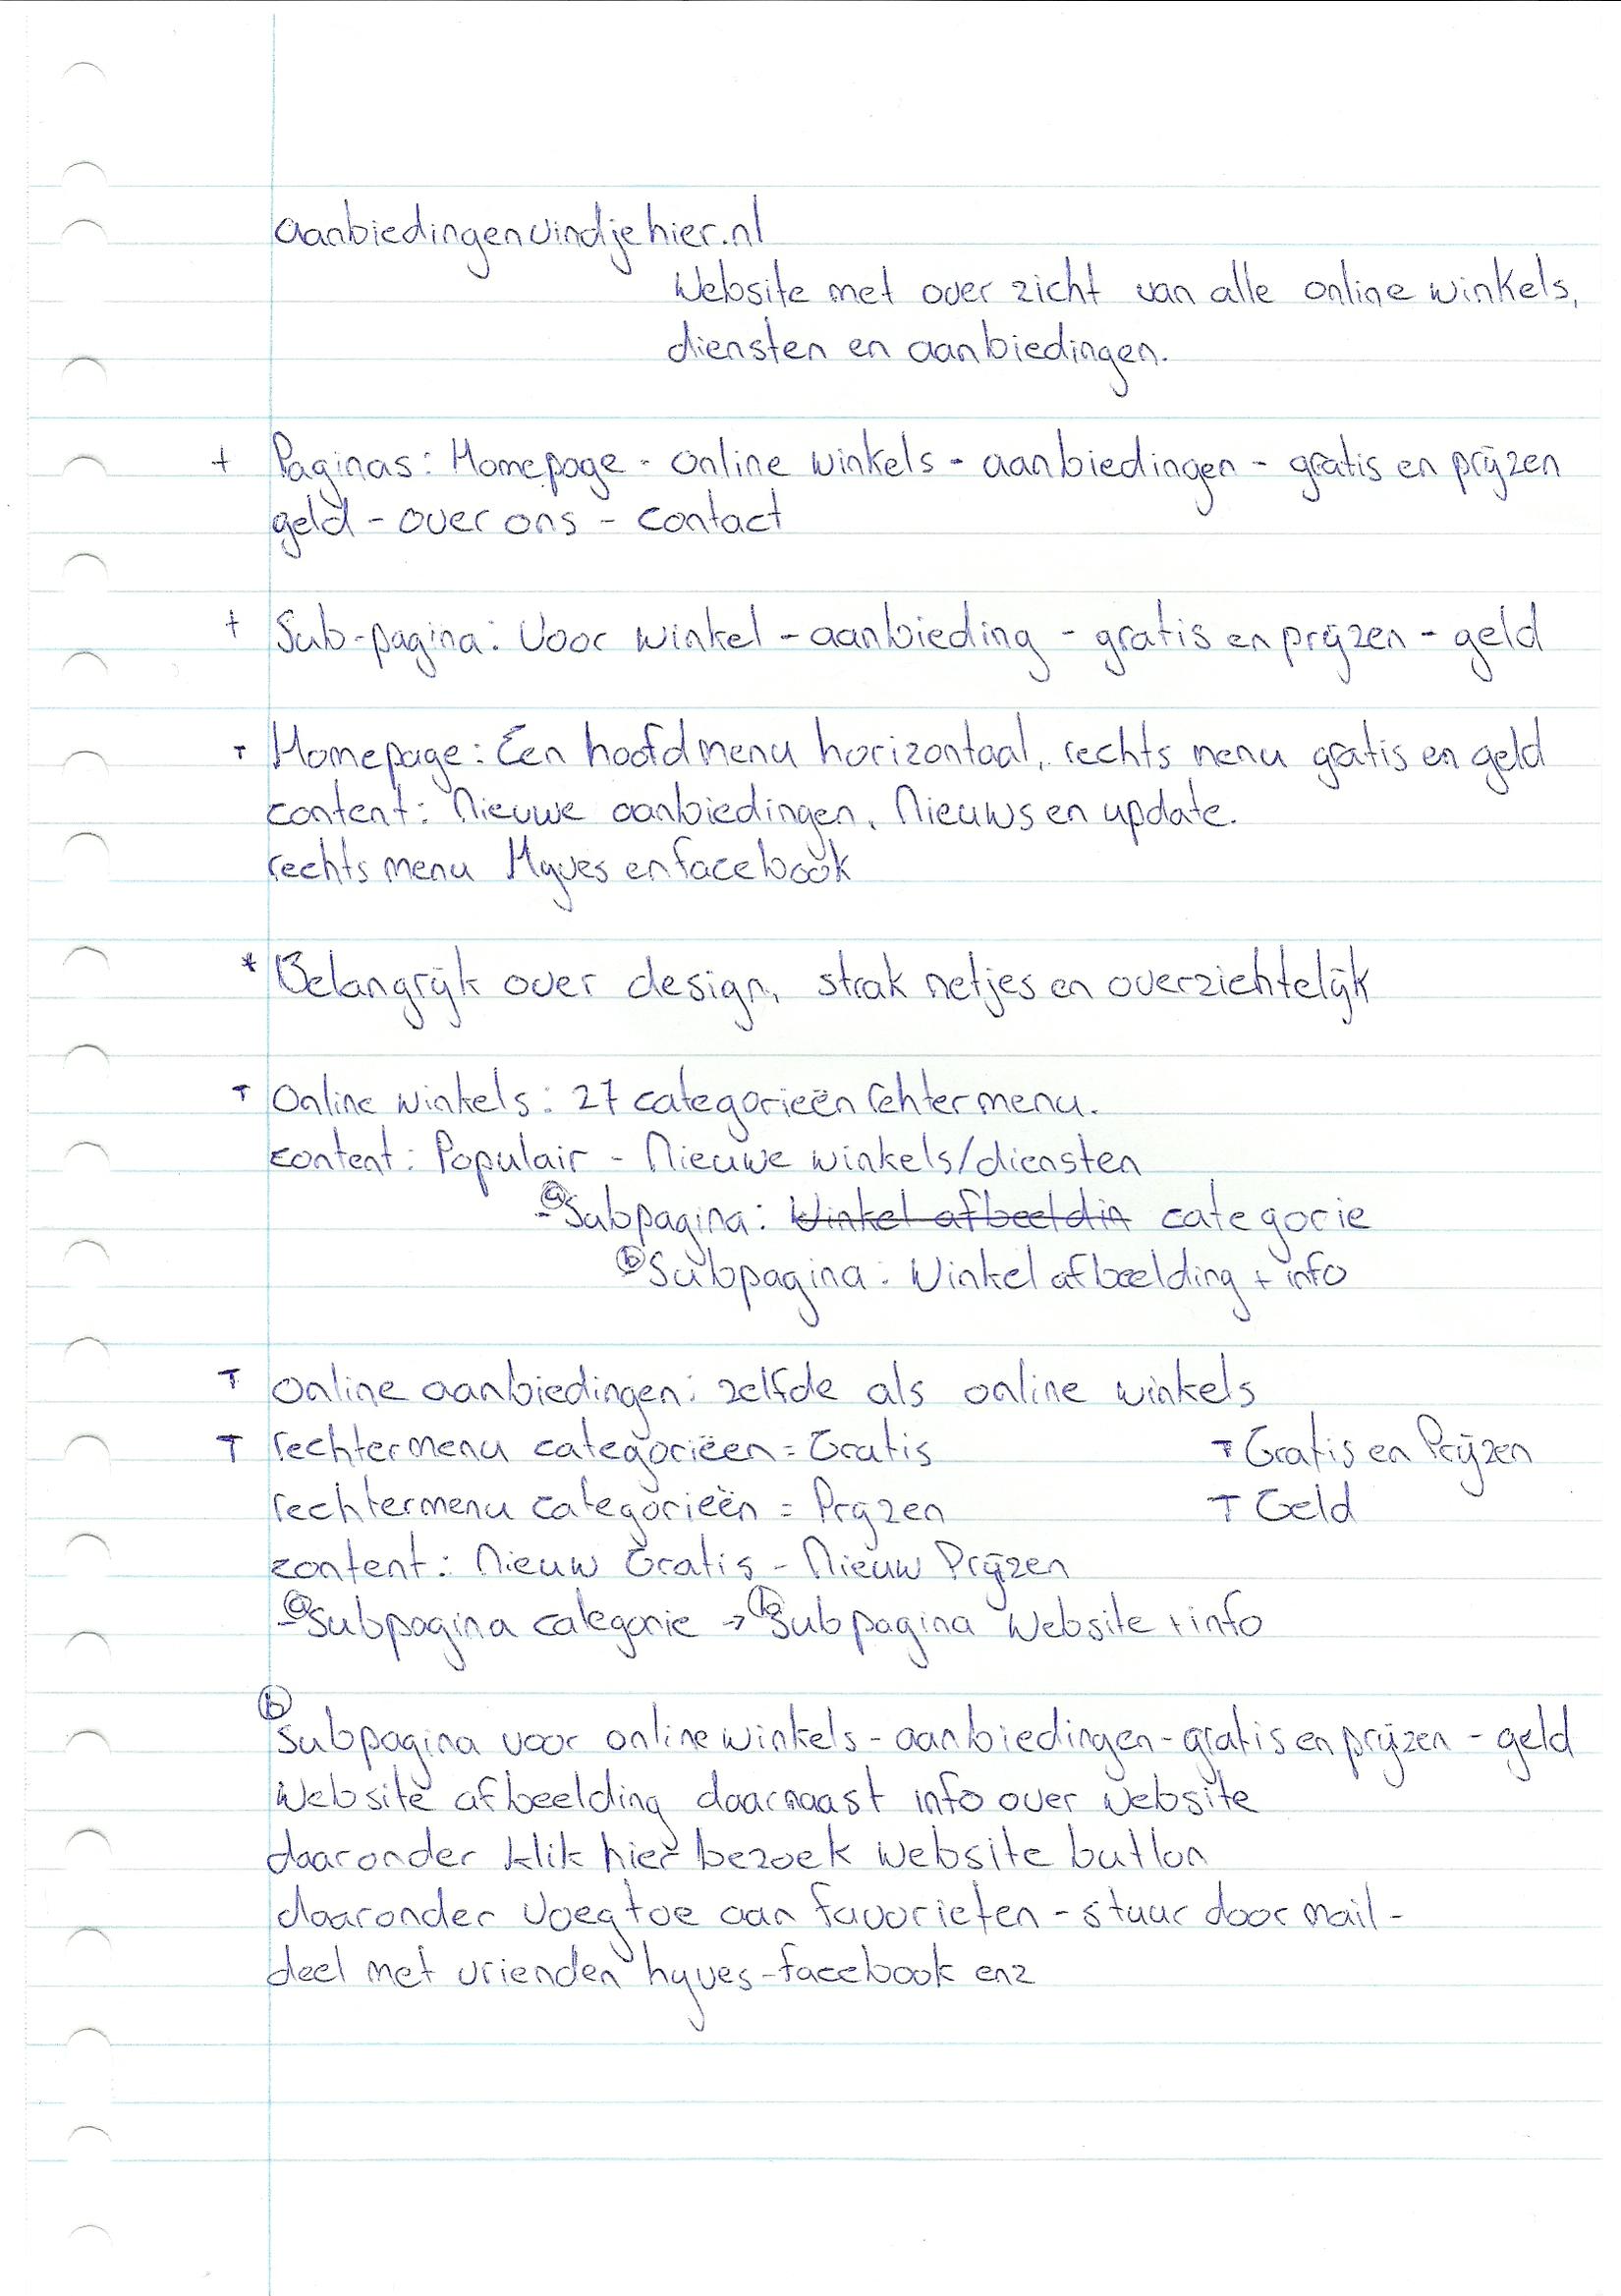 aanbiedingenvindjehier.nl
Website met over zicht van alle online winkels,
diensten en aanbiedingen.
+ Paginas: Homepage - online winkels - aanbiedingen - gratis en prijzen
geld - over ons - contact
+ Sub-pagina: Voor winkel - aanbieding - gratis en prijzen - geld
T Homepage: Een hoofdmenu horizontaal, rechts menu gratis en geld
content: Nieuwe aanbiedingen, Nieuws en update.
rechts menu Hyves en facebook
* Belangrijk over design, strak netjes en overzichtelijk
T Online winkels: 27 categorieën rehter menu.
content: Populair - Nieuwe winkels/diensten
- a Subpagina: Winkel afbeeldin categorie
b Subpagina: Winkel afbeelding + info
T online aanbiedingen: zelfde als online winkels
T rechtermenu categoriëen = Gratis T Gratis en Prijzen
rechtermenu categorieën = Prijzen T Geld
content: Nieuw Gratis - Nieuw Prijzen
- a Subpagina categorie → b Subpagina Website + info
b
Subpagina voor online winkels - aanbiedingen - gratis en prijzen - geld
Website afbeelding daarnaast info over website
daaronder klik hier bezoek website button
daaronder Voeg toe aan favorieten - stuur door mail -
deel met vrienden hyves - facebook enz